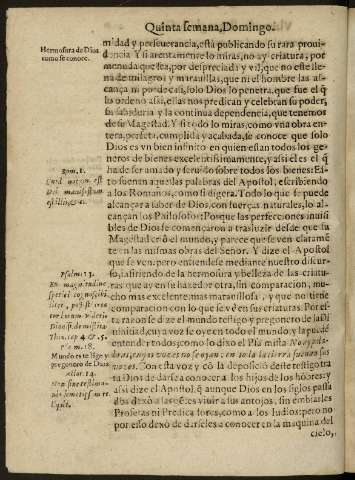 Quinta semana, Domingo.
Hermosura de Dios
como se conoce.
midad y perseverancia, está publicando su rara provi-
dencia Y si atentamente lo miras, no ay criatura, por
menuda que sea, por despreciada y vil, que no esté lle-
na de milagros y maravillas, que ni el hombre las al-
cança ni puede casi, solo Dios lo penetra, que fue el q̃
lo ordenó assi, ellas nos predican y celebran su poder,
su sabiduria y la continua dependencia, que tenemos
de su Magestad. Y si todo lo miras, como vna obra en-
tera, perfeta, cumplida y acabada, se conoce que solo
Dios es vn bien infinito en quien estan todos los ge-
neros de bienes excelentissimamente, y assi el es el q̃
ha de ser amado y servido sobre todos los bienes: Es-
to suenan aquellas palabras del Apostol, escribiendo
a los Romanos, como si digera. Todo lo que se puede
alcançar a saber de Dios, con fuerças naturales, lo al-
cançan los Philosofos: Porque las perfecciones invisi-
bles de Dios se començaron a trasluzir desde que su
Magestad crió el mundo, y parece que se ven claramẽ
te en las mismas obras del Señor. Y dize el Apostol
que se ven, pero entiendese mediante nuestro discur-
so, infiriendo de la hermosura y belleza de las criatu-
ras que ay en su hazedor otra, sin comparacion, mu-
cho mas excelente, mas maravillosa, y que no tiene
comparacion con lo que se vé en sus criaturas. Por es-
to se dize que es el mundo testigo y pregonero de la Di
vinidad, cuya voz se oye en todo el mundo, y la puedẽ
entender todos, como lo dixo el Psalmista No ay pala-
bras, cuyas vozes no se oyan, en toda la tierra suenan sus
vozes. Con esta voz y có la deposició deste testigo tra
ta Dios de darse a conocer a los hijos de los hõbres: y
assi dize el Apostol, q̃ aunque Dios en los siglos passa
dos dexó a las gẽtes vivir a sus antojos, sin embiarles
Profetas ni Predicadores, como a los Iudios: pero no
por esso dexó de darseles a conocer en la maquina del
cielo,
Rom. 1.
Quod notum est
Dei manifestum
est illis, &c.
Psalm. 13.
Th. 1. p. q. 4. & 5.
Psa m. 18.
Mundo es testigo y
pregonero de Dios.
Actor. 14.